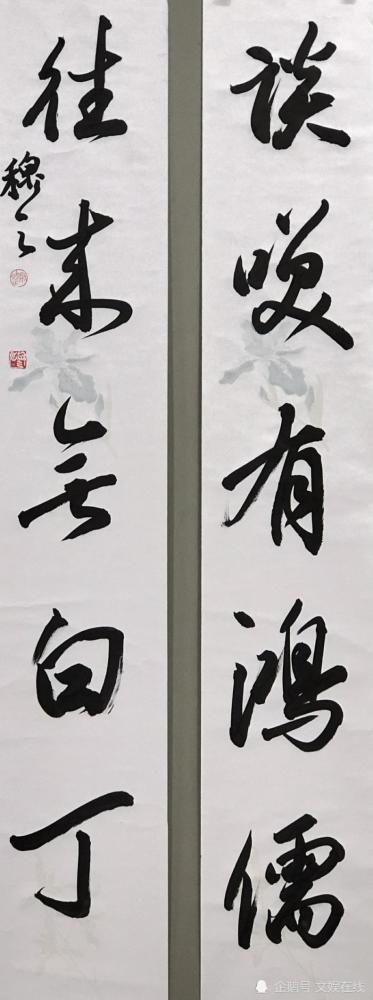 谈笑有鸿儒
往来无白丁
穆之
企鹅号 文娱在线